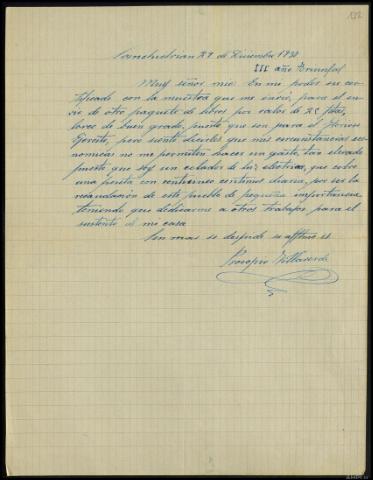 132
Sanchidrian 29 de Diciembre 1938
III año Triunfal
Muy señor mio: En mi poder su
tificado con la muestra que me envió, para el en
vio de otro paquete de libros por valor de 25 ptas,
de buen grado, puesto que son para el
Ejército, pero siento decirles que mis circunstancias eco
nomicas no me permiten hacer un gasto tan elevado
puesto que soy un celador de luz electrica, que cobro
una peseta con centimos diaria, por ser la
recaudación de este pueblo de pequeña importancia
teniendo que dedicarme a otros trabajos para el
sustento de mi casa
Sin mas se despide su affmo ss
Procopio Villaverde